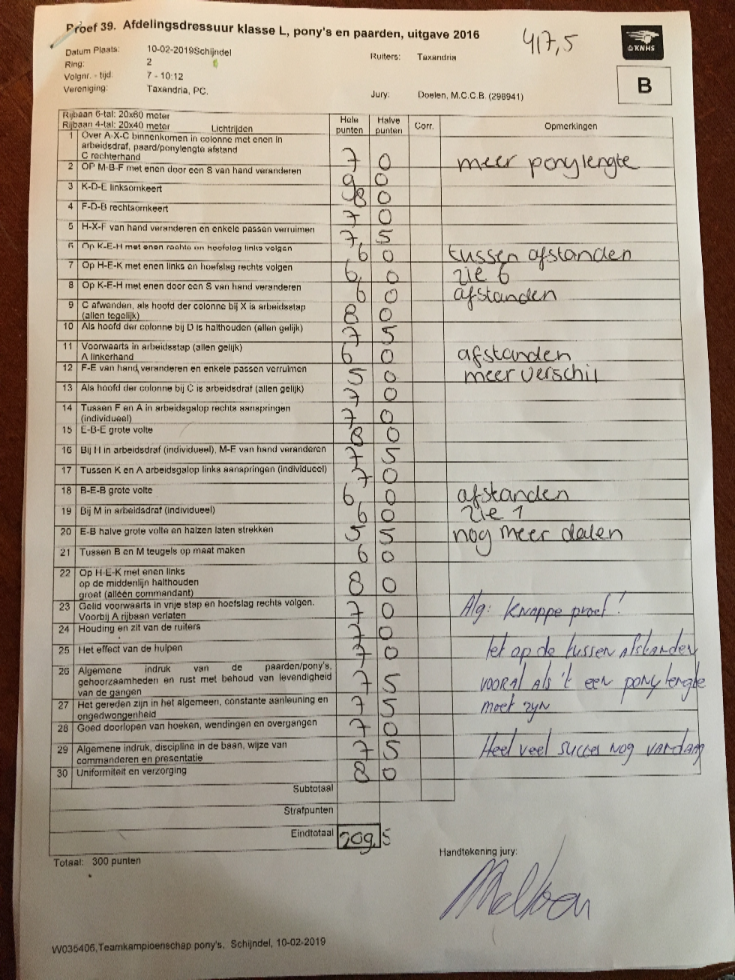 Proef 39. Afdelingsdressuur klasse L, pony's en paarden, uitgave 2016
417,5
KNHS
Datum Plaats: 10-02-2019Schijndel Ruiters: Taxandria
Ring: 2
Volgnr. - tijd: 7 - 10:12
Vereniging: Taxandria, PC. Jury: Doelen, M.C.C.B. (298941)
B
Rijbaan 6-tal: 20x60 meter
Rijbaan 4-tal: 20x40 meter Lichtrijden Hele punten Halve punten Corr. Opmerkingen
1 Over A-X-C binnenkomen in colonne met enen in
arbeidsdraf, paard/ponylengte afstand
C rechterhand 7 0 meer ponylengte
2 OP M-B-F met enen door een S van hand veranderen 9 0
3 K-D-E linksomkeert 8 0
4 F-D-B rechtsomkeert 7 0
5 H-X-F van hand veranderen en enkele passen verruimen 7, 5
6 Op K-E-H met enen rechts en hoefslag links volgen 6 0 tussen afstanden
7 Op H-E-K met enen links en hoefslag rechts volgen 6, 0 zie 6
8 Op K-E-H met enen door een S van hand veranderen 6 0 afstanden
9 C afwenden, als hoofd der colonne bij X is arbeidsstap
(allen tegelijk) 8 0
10 Als hoofd der colonne bij D is halthouden (allen gelijk) 7 5
11 Voorwaarts in arbeidsstap (allen gelijk)
A linkerhand 6 0 afstanden
12 F-E van hand veranderen en enkele passen verruimen 5 0 meer verschil
13 Als hoofd der colonne bij C is arbeidsdraf (allen gelijk) 7 0
14 Tussen F en A in arbeidsgalop rechts aanspringen
(individueel) 7 0
15 E-B-E grote volte 8 0
16 Bij H in arbeidsdraf (individueel), M-F van hand veranderen 7 5
17 Tussen K en A arbeidsgalop links aanspringen (individueel) 7 0
18 B-E-B grote volte 6, 0 afstanden
19 Bij M in arbeidsdraf (individueel) 6 0 zie 1
20 E-B halve grote volte en halzen laten strekken 5 5 nog meer dalen
21 Tussen B en M teugels op maat maken 6 0
22 Op H-E-K met enen links
op de middenlijn halthouden
groet (alleen commandant) 8 0
23 Gelid voorwaarts in vrije stap en hoefslag rechts volgen.
Voorbij A rijbaan verlaten 7 0 Alg: Knappe proef!
24 Houding en zit van de ruiters 7 0
25 Het effect van de hulpen 7 0 let op de tussen afstanden
26 Algemene indruk van de paarden/pony's,
gehoorzaamheid en rust met behoud van levendigheid
van de gangen 7 5 vooral als 't een ponylengte
27 Het gereden zijn in het algemeen, constante aanleuning en
ongedwongenheid 7 5 moet zyn
28 Goed doorlopen van hoeken, wendingen en overgangen 7 0
29 Algemene indruk, discipline in de baan, wijze van
commanderen en presentatie 7 5 Heel veel succes nog vandaag
30 Uniformiteit en verzorging 8 0
Subtotaal
Strafpunten
Eindtotaal 209,5
Totaal: 300 punten
Handtekening jury:
W035406,Teamkampioenschap pony's, Schijndel, 10-02-2019